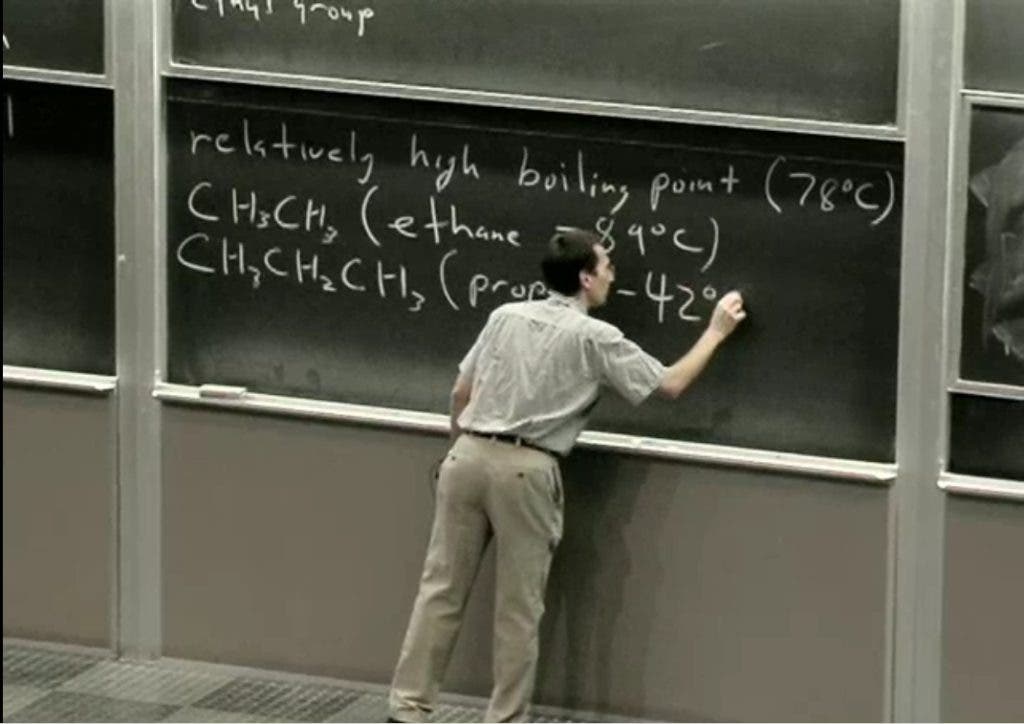 group
relatively high boiling point (78°C)
CH₃CH₃ (ethane -89°C)
CH₃CH₂CH₃ (prop -42°